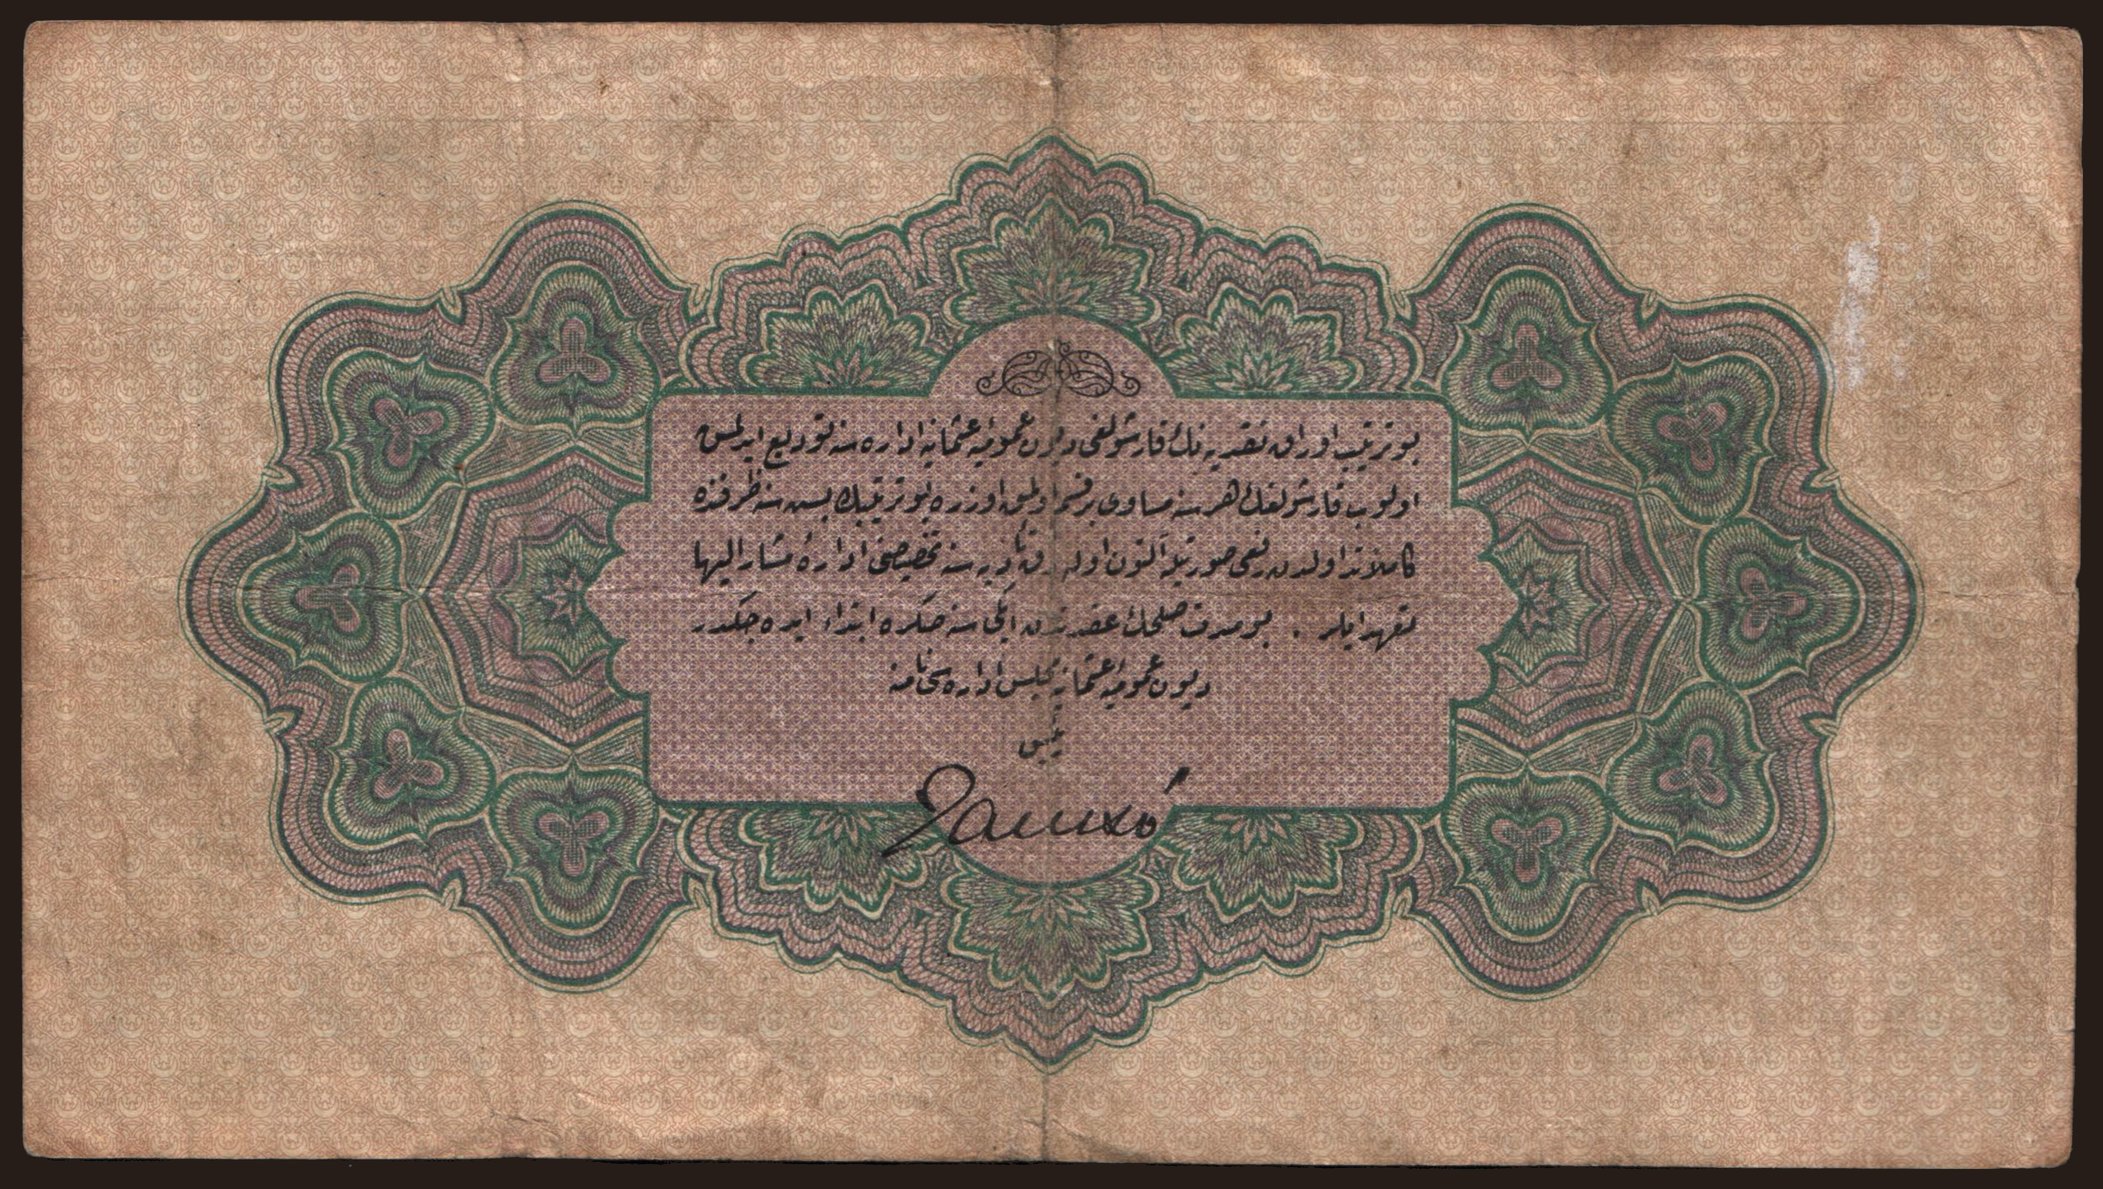 بو ترتیب اوراق نقدیه‌نك قارشولغی دیون عمومیهٔ عثمانیه اداره‌سنه تودیع ایدلمش
اولوب قارشولغك هر سنه مساوی بر قسم اولمق اوزره بو ترتیبك بش سنه ظرفنده
كاملاً تداولدن رفعی صورتیله آلتون اوله‌رق تأدیه‌سنه تخصیصنی ادارهٔ مشار الیها
تعهد ایلر . بو مدت صلحك عقدندن ایكی سنه صكره ابتداء ایده‌جكدر
دیون عمومیهٔ عثمانیه مجلس اداره‌سی نامنه
رئیس